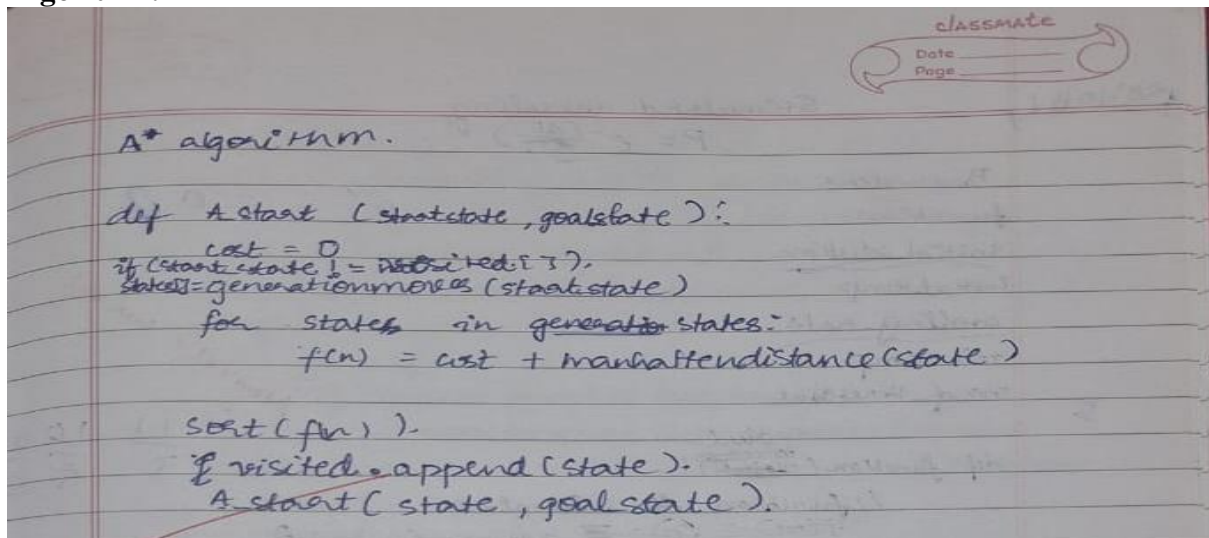 classmate
Date
Page
A* algorithm.
def A staat (staatstate, goalstate):
cost = 0
if (staat state != visited[]).
states[]=generationmoves (staatstate)
for states in generatio states:
f(n) = cost + manhattendistance(state)
sort (f(n)).
visited.append (state).
A staat (state, goal state).